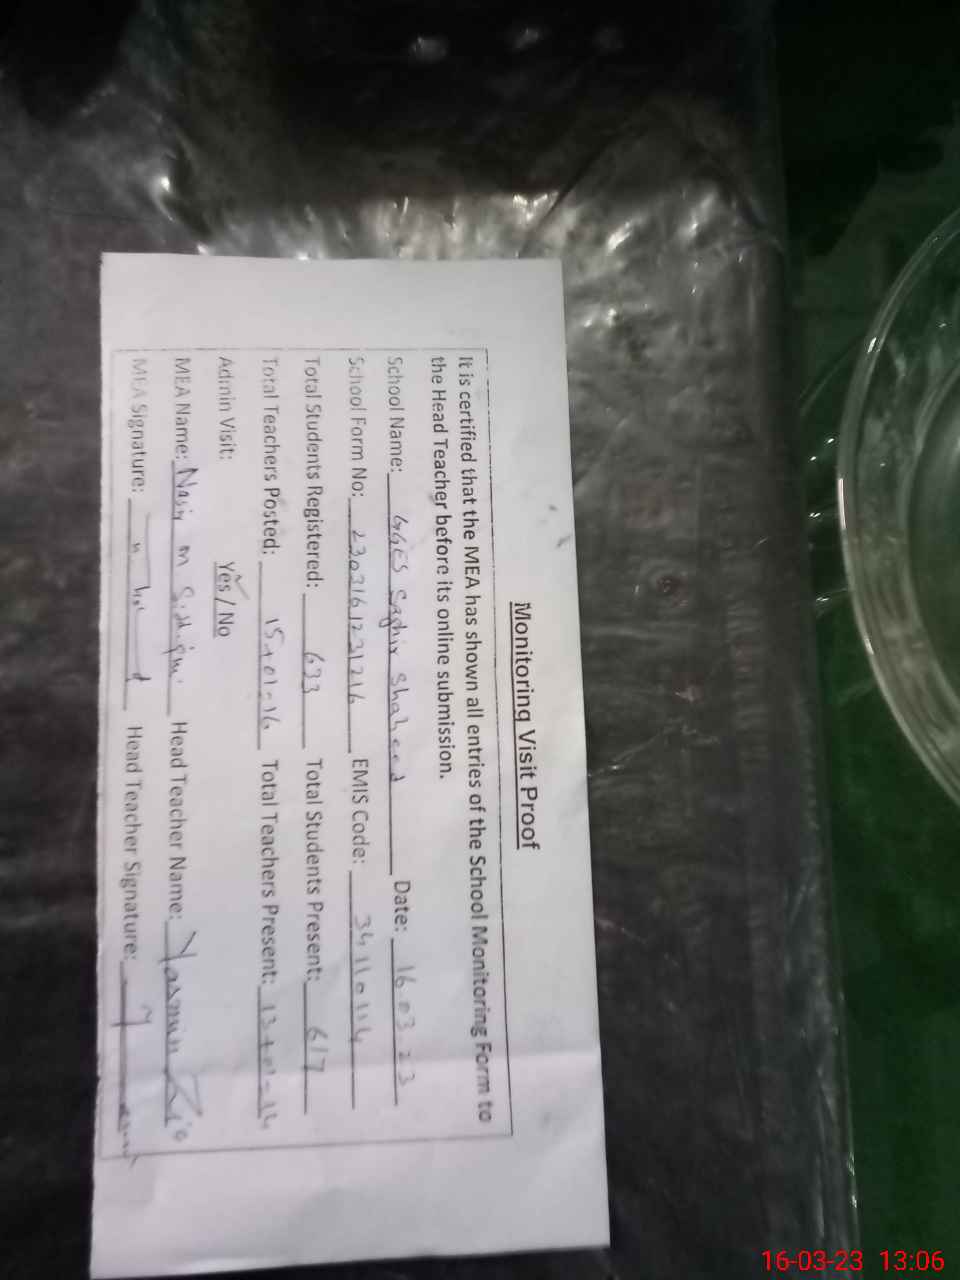 Monitoring Visit Proof
It is certified that the MEA has shown all entries of the School Monitoring Form to
the Head Teacher before its online submission.
School Name: GGES Saghir Shaheed Date: 16.03.23
School Form No: 2303161231216 EMIS Code: 34110114
Total Students Registered: 633 Total Students Present: 617
Total Teachers Posted: 15+01=16 Total Teachers Present: 13+01=14
Admin Visit: Yes / No
MEA Name: Nasir m Siddiqui Head Teacher Name: Yasmin Zia
MEA Signature: Head Teacher Signature:
16-03-23 13:06